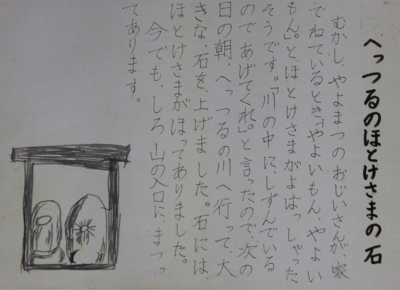 へっつるのほとけさまの石
むかし、やよまつのおじいさんが、家
でねているとき「やよいもん、やよい
もん」と、ほとけさまがよばっしゃった
そうです。「川の中に、しずんでいる
のであげてくれ。」と言ったので、次の
日の朝、へっつるの川へ行って、大
きな、石を、上げました。石には、
ほとけさまがほってありました。
今でも、しろ山の入口に、まつっ
てあります。